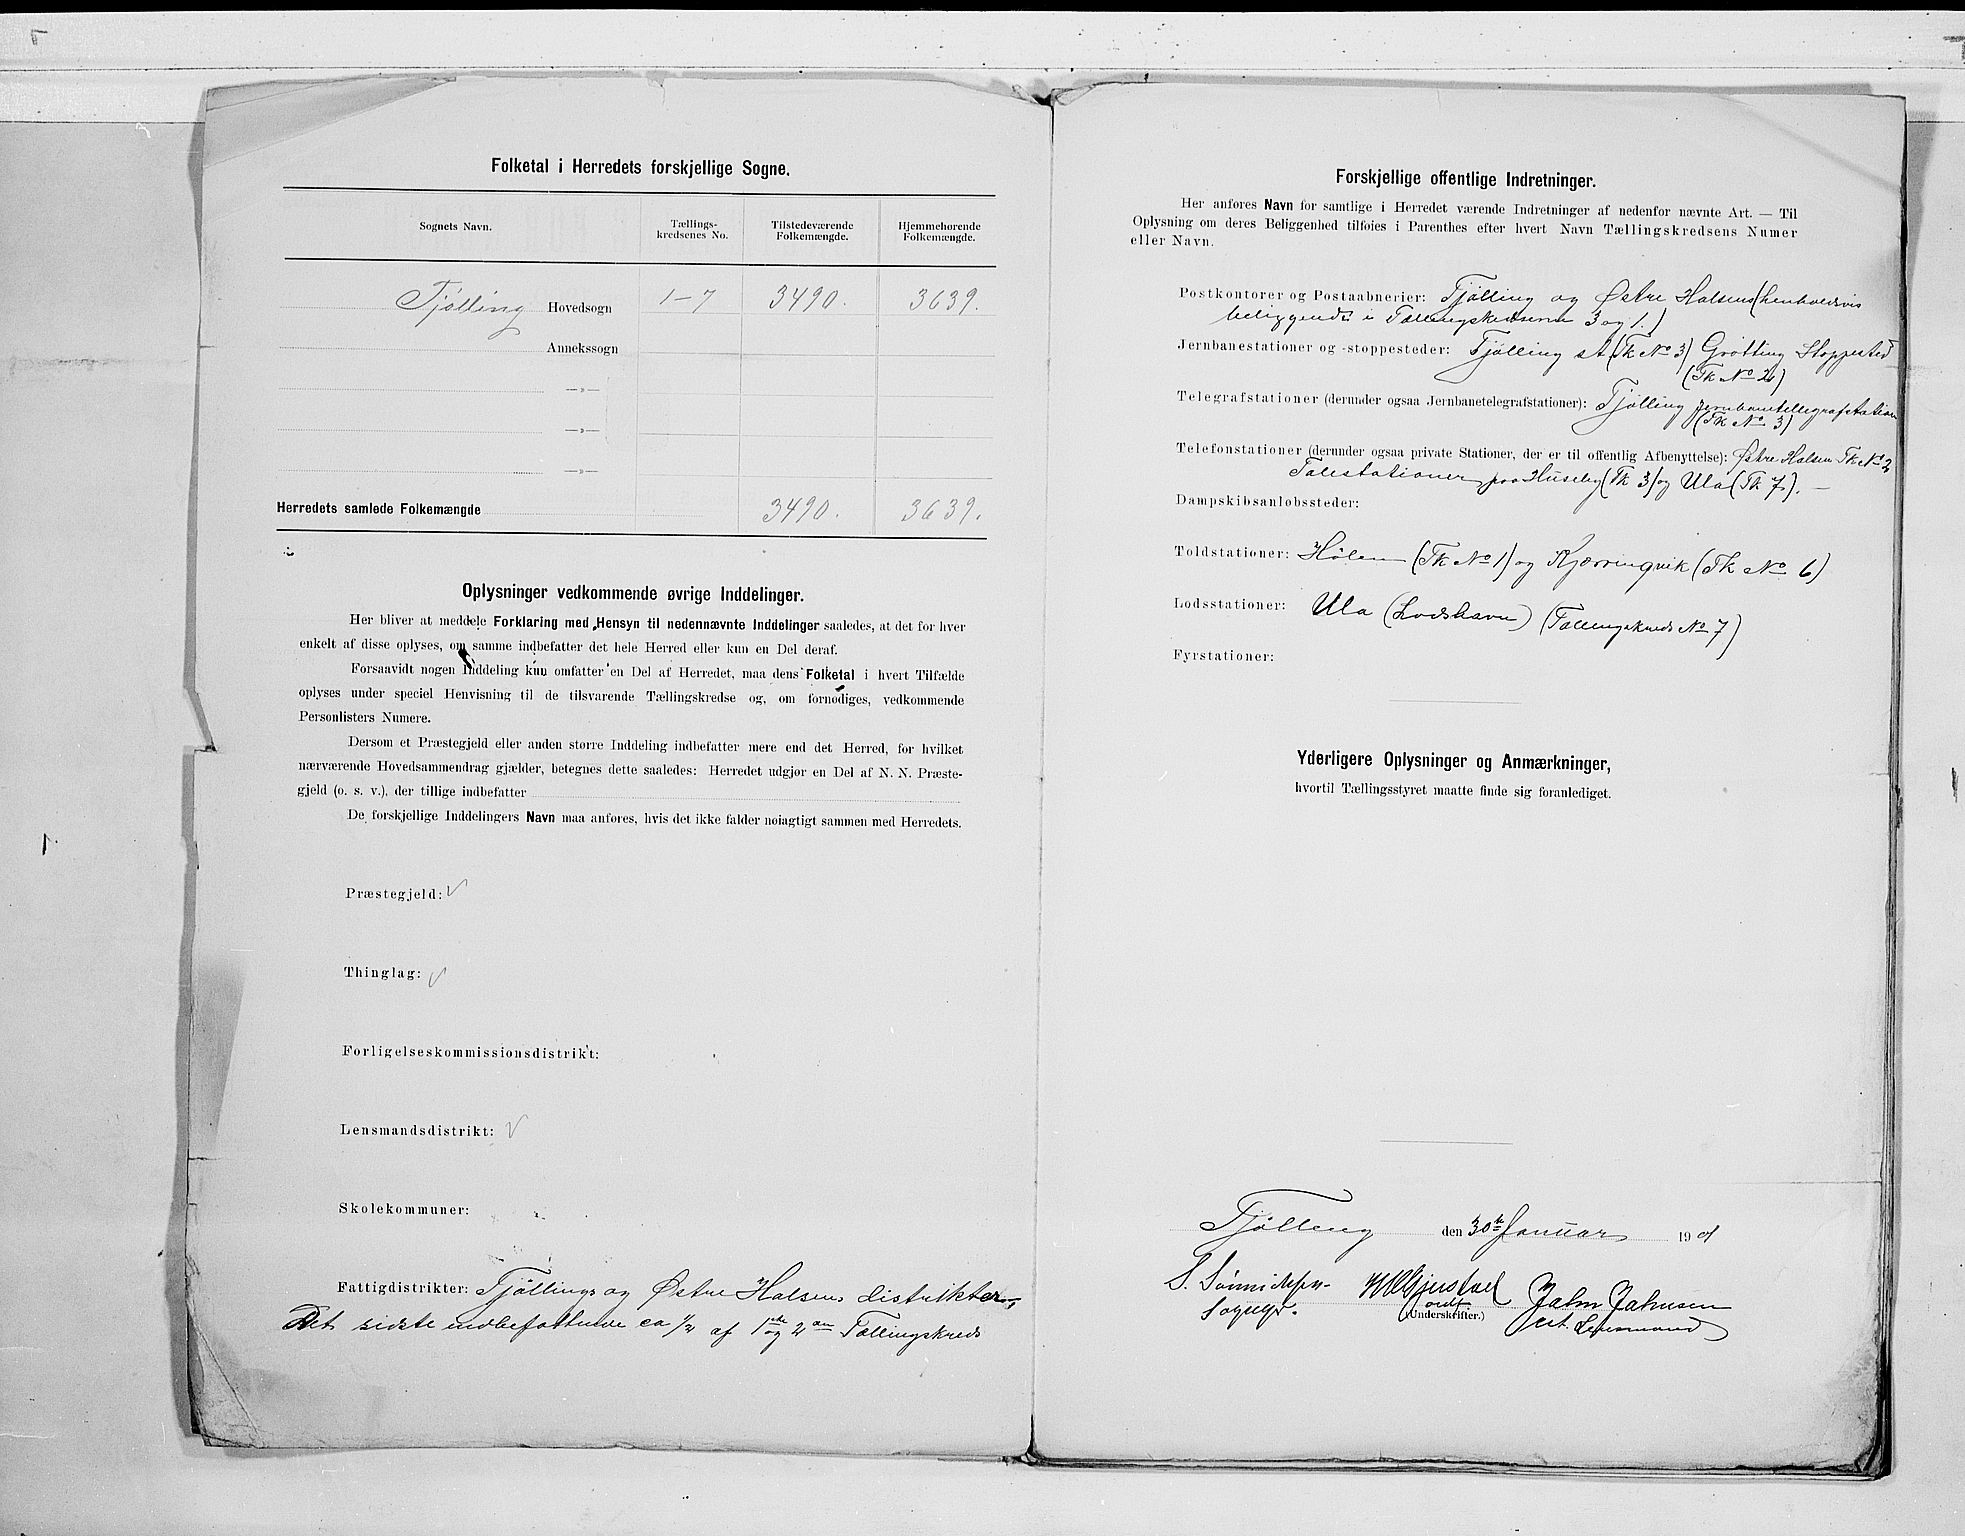 Folketal i Herredets forskjellige Sogne.
Sognets Navn.
Tællings-
kredsenes No.
Tilstedeværende
Folkemængde.
Hjemmehørende
Folkemængde.
Tjølling Hovedsogn 1-7 3490. 3639.
Annekssogn
—»—
—»—
—»—
Herredets samlede Folkemængde 3490. 3639.
Oplysninger vedkommende øvrige Inddelinger.
Her bliver at meddele Forklaring med Hensyn til nedennævnte Inddelinger saaledes, at det for hver
enkelt af disse oplyses, om samme indbefatter det hele Herred eller kun en Del deraf.
Forsaavidt nogen Inddeling kun omfatter en Del af Herredet, maa dens Folketal i hvert Tilfælde
oplyses under speciel Henvisning til de tilsvarende Tællingskredse og, om fornødiges, vedkommende
Personlisters Numere.
Dersom et Præstegjeld eller anden større Inddeling indbefatter mere end det Herred, for hvilket
nærværende Hovedsammendrag gjælder, betegnes dette saaledes: Herredet udgjør en Del af N. N. Præste-
gjeld (o. s. v.), der tillige indbefatter
De forskjellige Inddelingers Navn maa anføres, hvis det ikke falder nøiagtigt sammen med Herredets.
Præstegjeld: √
Thinglag: √
Forligelseskommissionsdistrikt:
Lensmandsdistrikt: √
Skolekommuner:
Fattigdistrikter: Tjøllings og Østre Halsens distrikter,
Det sidste indbefattende ca 1/2 af 1ste og 2den Tællingskreds
Forskjellige offentlige Indretninger.
Her anføres Navn for samtlige i Herredet værende Indretninger af nedenfor nævnte Art. — Til
Oplysning om deres Beliggenhed tilføies i Parenthes efter hvert Navn Tællingskredsens Numer
eller Navn.
Postkontorer og Postaabnerier: Tjølling og Østre Halsens (henholdsvis
beliggende i Tællingskredsene 3 og 1.)
Jernbanestationer og -stoppesteder: Tjølling st (Tk No 3) Grøtting Stoppested
(Tk No 2)
Telegrafstationer (derunder ogsaa Jernbanetelegrafstationer): Tjølling Jernbanetellegrafstation
(Tk No 3)
Telefonstationer (derunder ogsaa private Stationer, der er til offentlig Afbenyttelse): Østre Halsen Tk No 2
Talestationer paa Huseby (Tk 3) og Ula (Tk 7). —
Dampskibsanløbssteder:
Toldstationer: Hølen (Tk No 1) og Kjærringvik (Tk No 6)
Lodsstationer: Ula (Lodshavn) (Tællingskreds No 7)
Fyrstationer:
Yderligere Oplysninger og Anmærkninger,
hvortil Tællingsstyret maatte finde sig foranlediget.
Tjølling den 30te Januar 1901
S. Jahn Jahnsen
Sognepr. ordf. cst. Lensmand
(Underskrifter.)